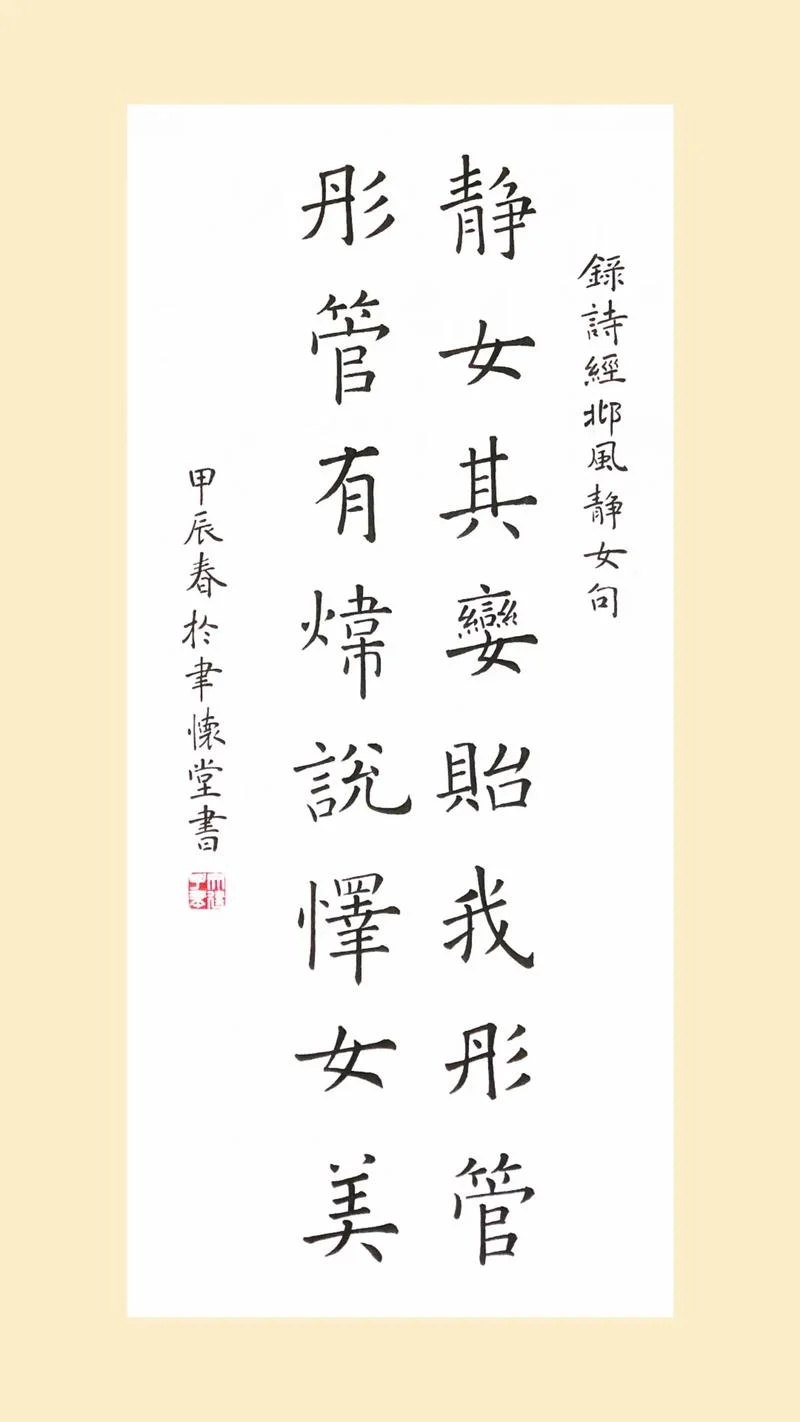 錄詩經邶風静女句
静女其孌貽我彤管
彤管有煒說懌女美
甲辰春於聿懷堂書